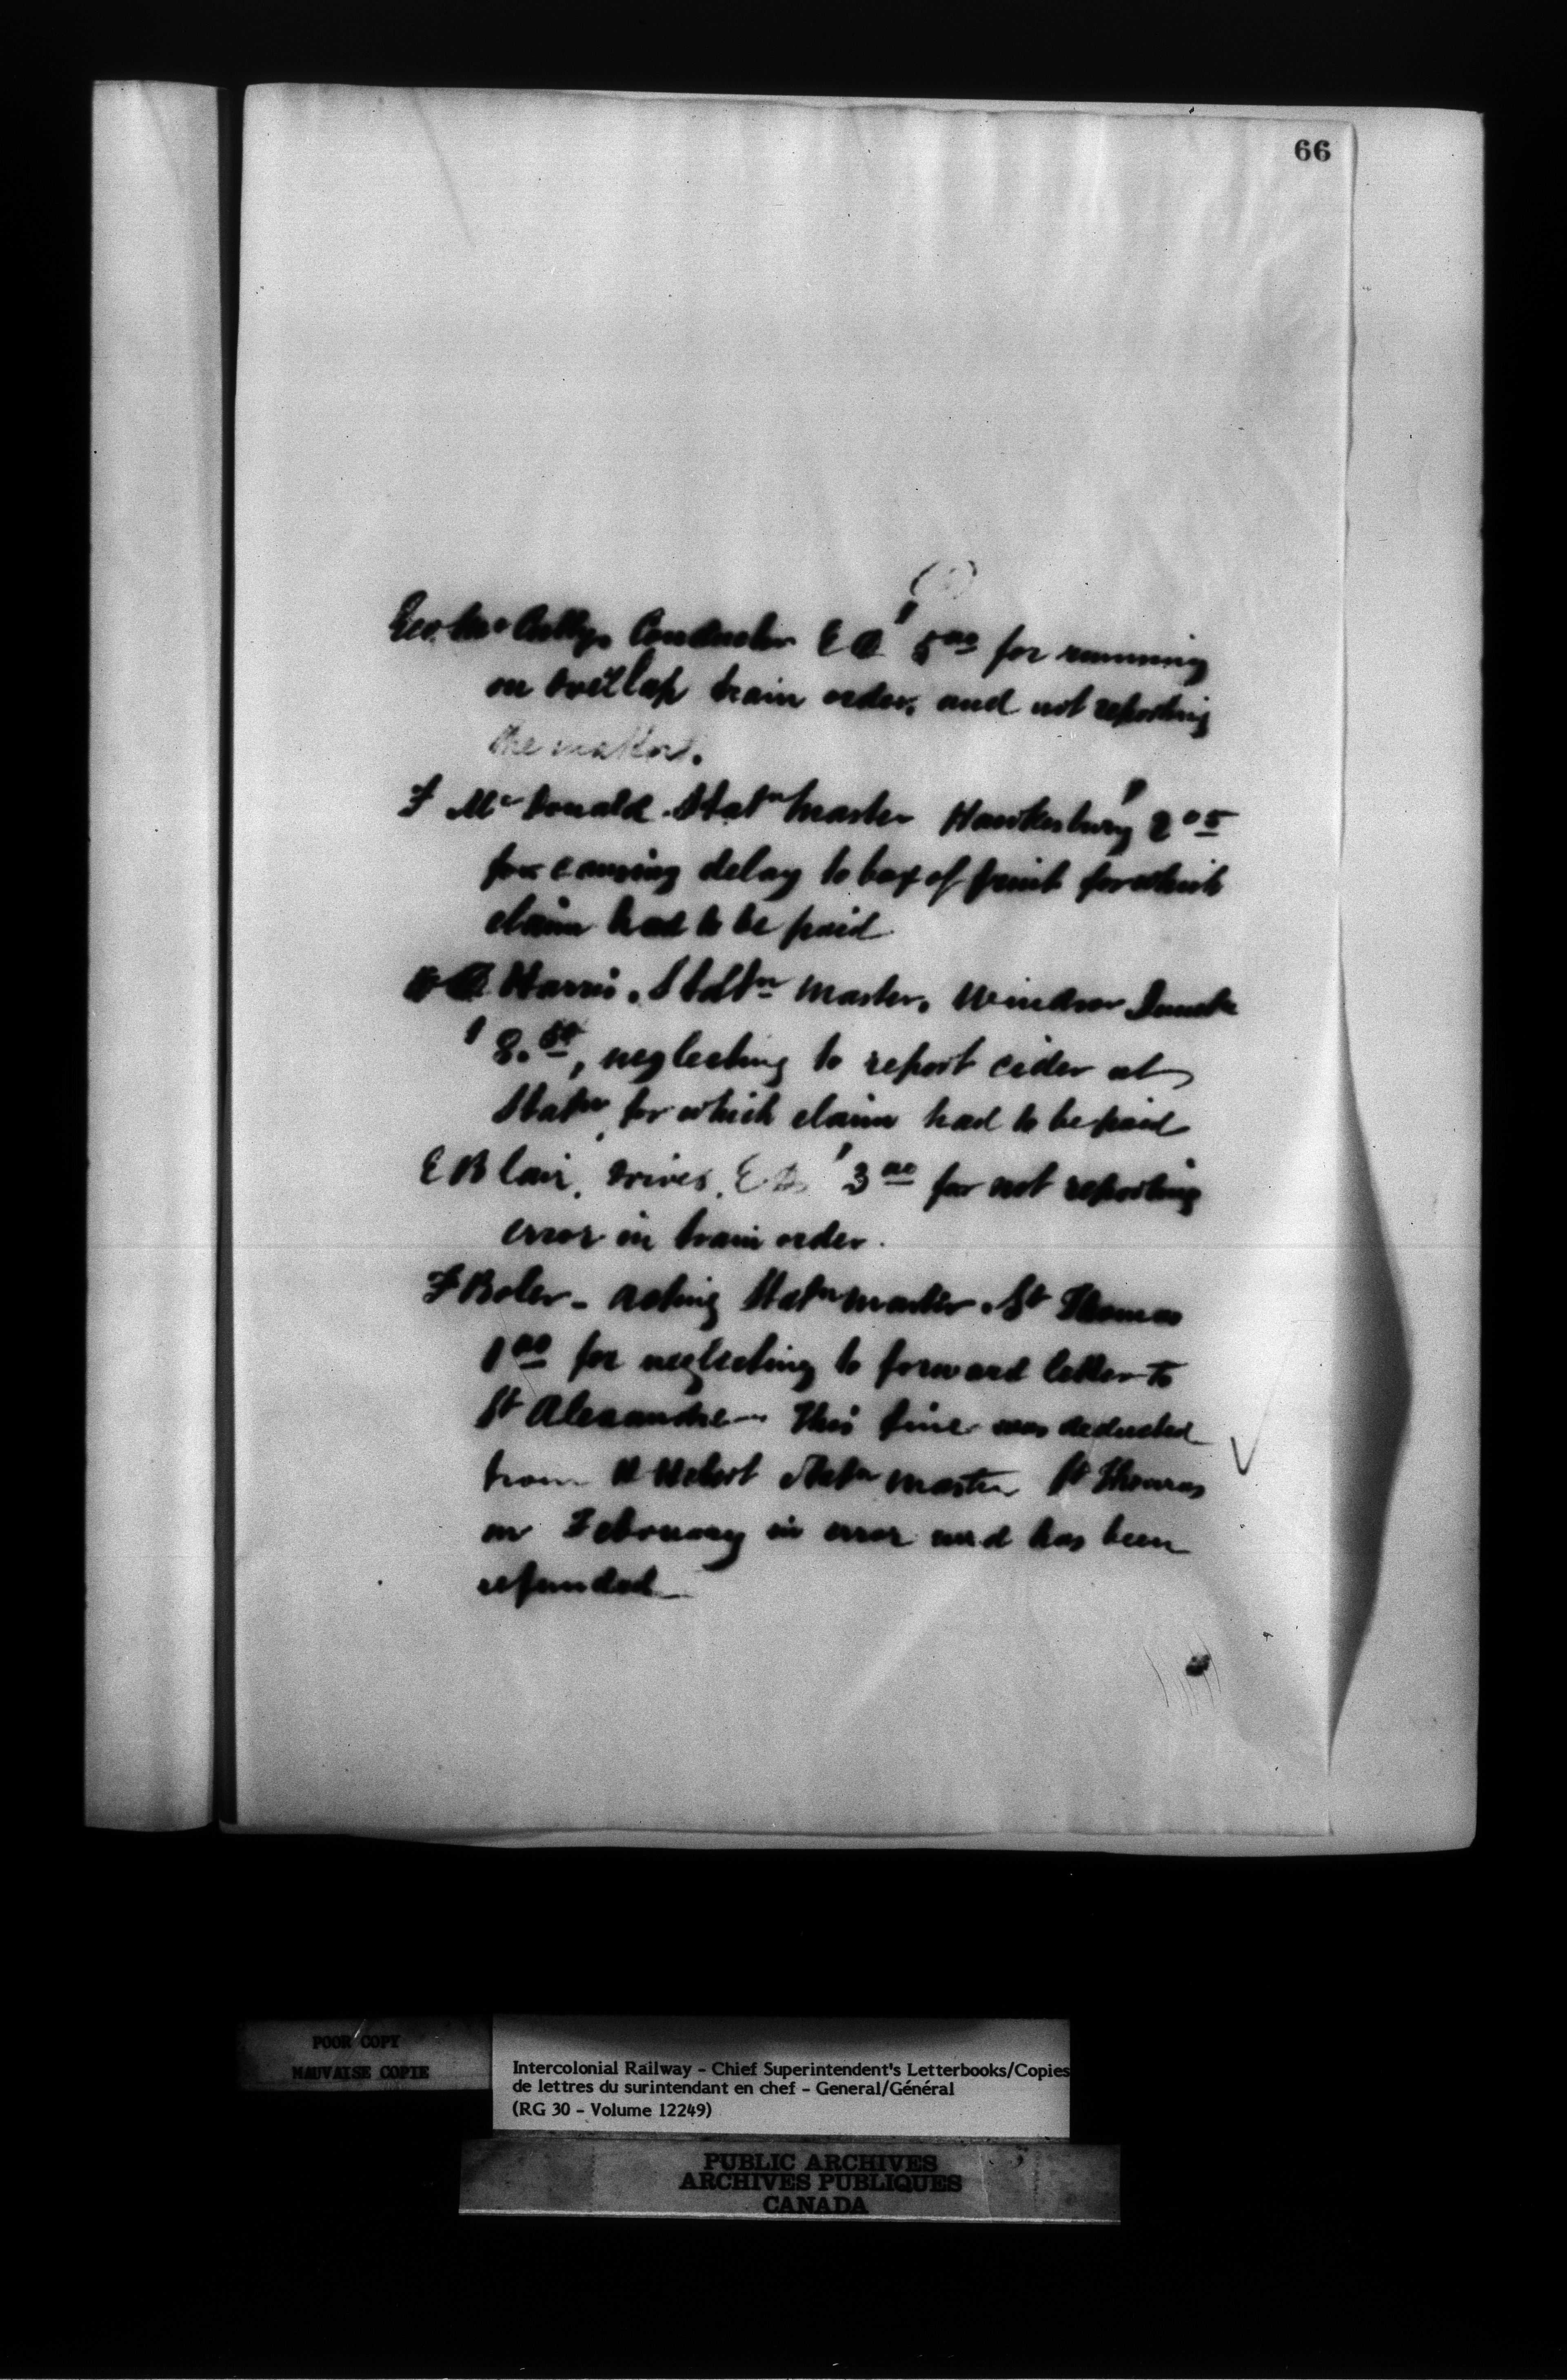 66
Geo. McCully, Conductor E D $5 00 for running
on overlap train order, and not reporting
the matter.
F McDonald. Statn Master Hawkesbury $2 05
for causing delay to box of fruit for which
claim had to be paid
Harris, Statn Master, Windsor Junct
$8. neglecting to report cider at
Statn, for which claim had to be paid
E Blair, Driver, E D. $3 00 for not reporting
error in train order.
F Boler - Acting Statn Master. St Thomas
$1 00 for neglecting to forward letter to
St Alexandre - This fine was deducted
from Hebert Statn Master St Thomas
in February in error and has been
refunded
POOR COPY
MAUVAISE COPIE
Intercolonial Railway - Chief Superintendent's Letterbooks/Copies
de lettres du surintendant en chef - General/Général
(RG 30 - Volume 12249)
PUBLIC ARCHIVES
ARCHIVES PUBLIQUES
CANADA